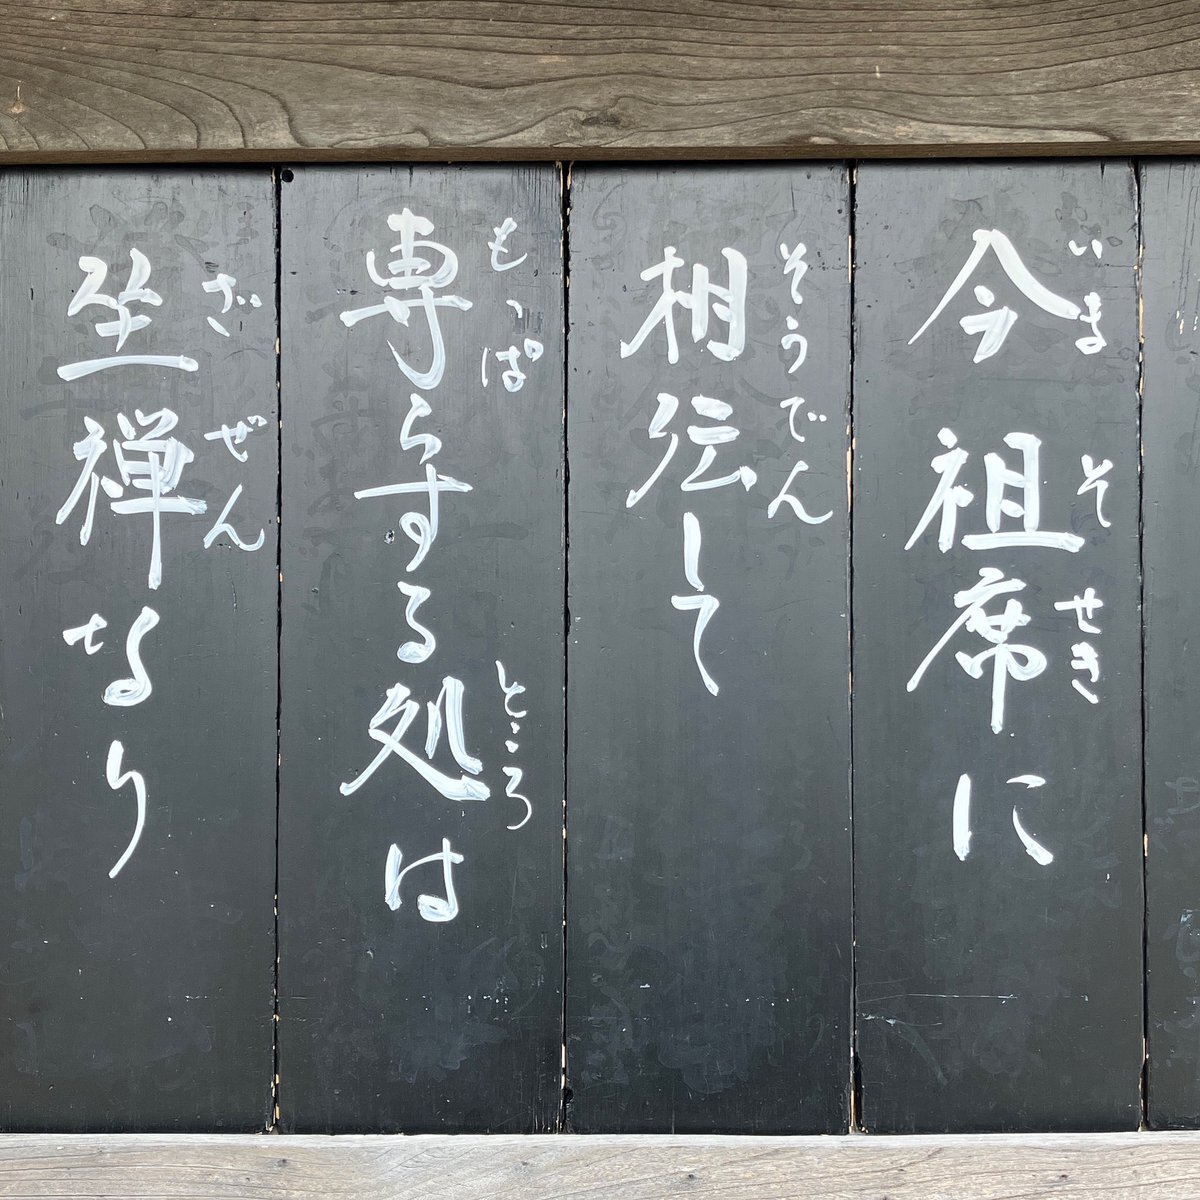 今祖席に
いま そせき
相伝して
そうでん
専らする処は
もっぱ ところ
坐禅なり
ざぜん